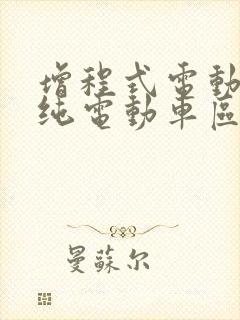 增程式電動
纯電動車區
曼蘇尔